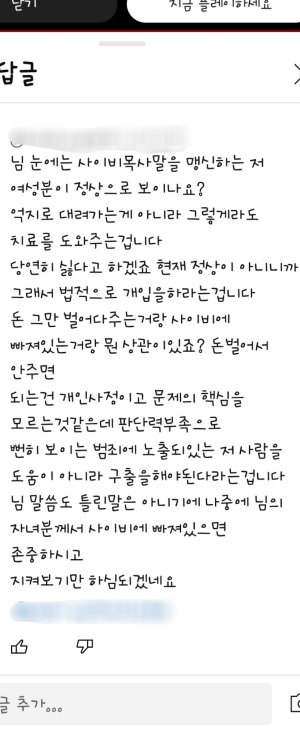 닫기
지금 플레이하세요
답글
님 눈에는 사이비목사말을 맹신하는 저
여성분이 정상으로 보이나요?
억지로 대려가는게 아니라 그렇게라도
치료를 도와주는겁니다
당연히 싫다고 하겠죠 현재 정상이 아니니까
그래서 법적으로 개입을하라는겁니다
돈 그만 벌어다주는거랑 사이비에
빠져있는거랑 뭔 상관이있죠? 돈벌어서
안주면
되는건 개인사정이고 문제의 핵심을
모르는것같은데 판단력부족으로
뻔히 보이는 범죄에 노출되있는 저 사람을
도움이 아니라 구출을해야된다라는겁니다
님 말씀도 틀린말은 아니기에 나중에 님의
자녀분께서 사이비에 빠져있으면
존중하시고
지켜보기만 하심되겠네요
글 추가...